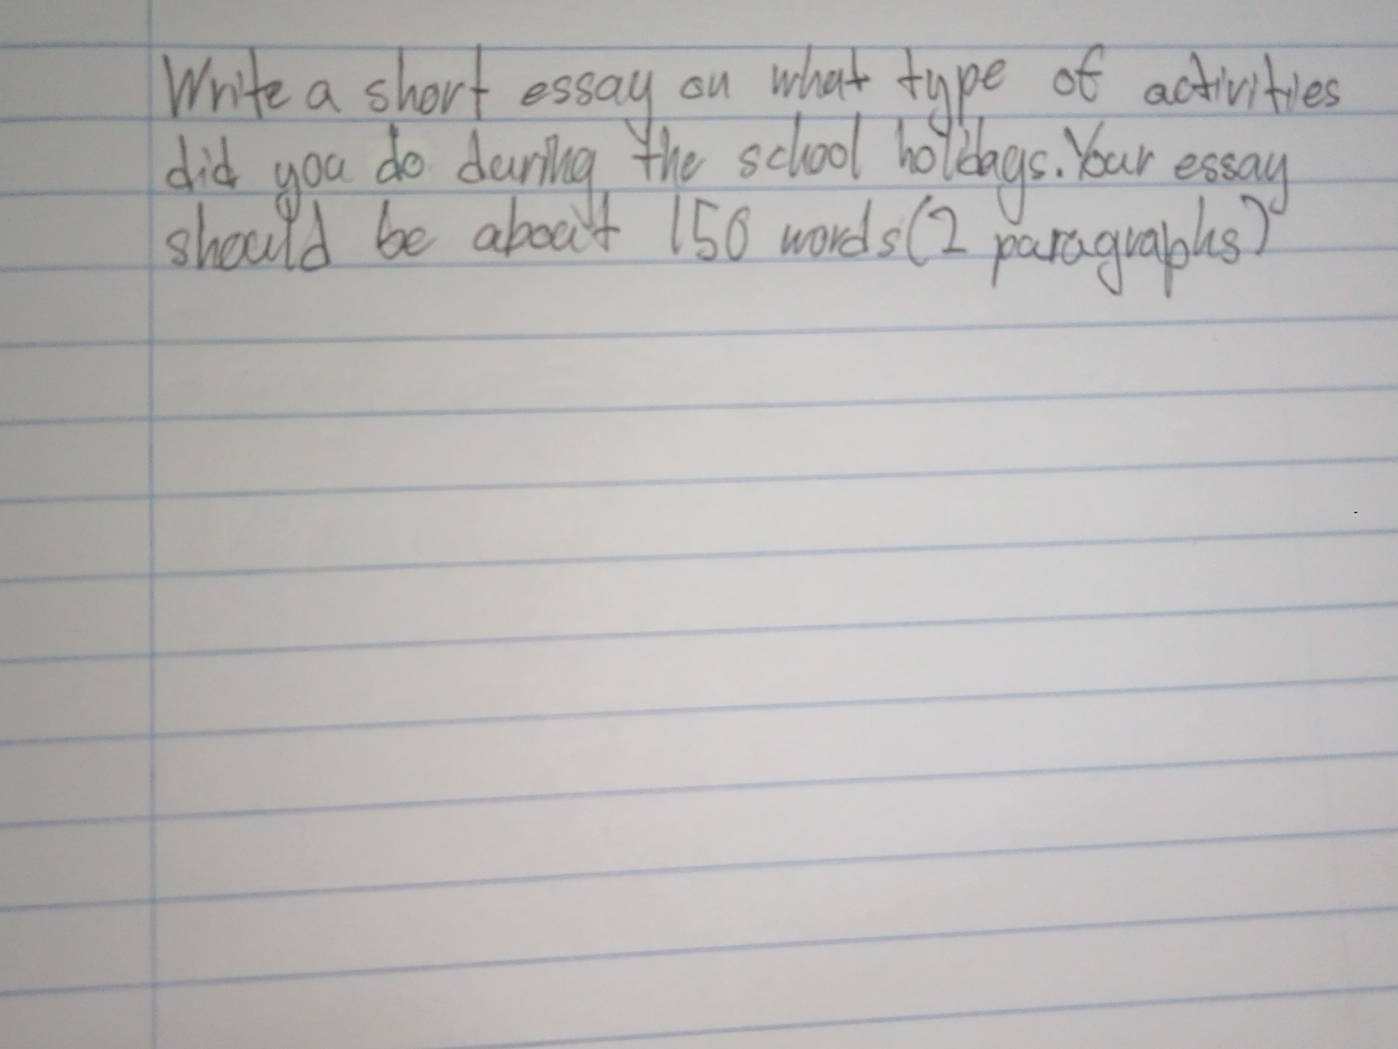 Write a short essay on what type of activities
did you do during the school holidays. Your essay
should be about 150 words (2 paragraphs)